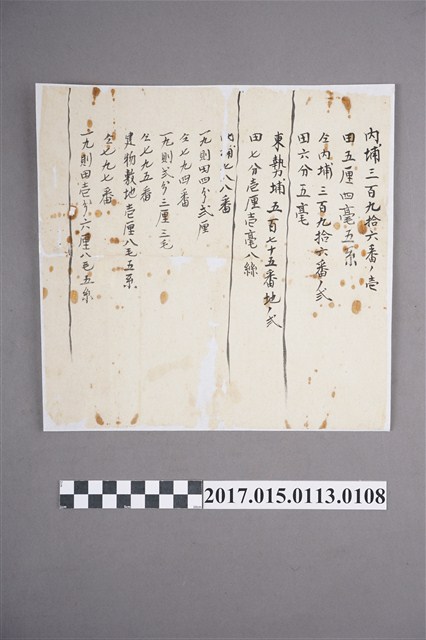 內埔三百九拾六番ノ壱
田五厘四毫五糸
仝內埔三百九拾六番ノ弍
田六分五毫
東勢埔五百七十五番地ノ弍
田七分壱厘壱毫八絲
內埔七八八番
一九則田四分弍厘
仝七九四番
一九則弍分三厘三毛
仝七九五番
建物敷地壱厘八毛五糸
仝七九七番
一九則田壱分六厘八毛五糸
2017.015.0113.0108